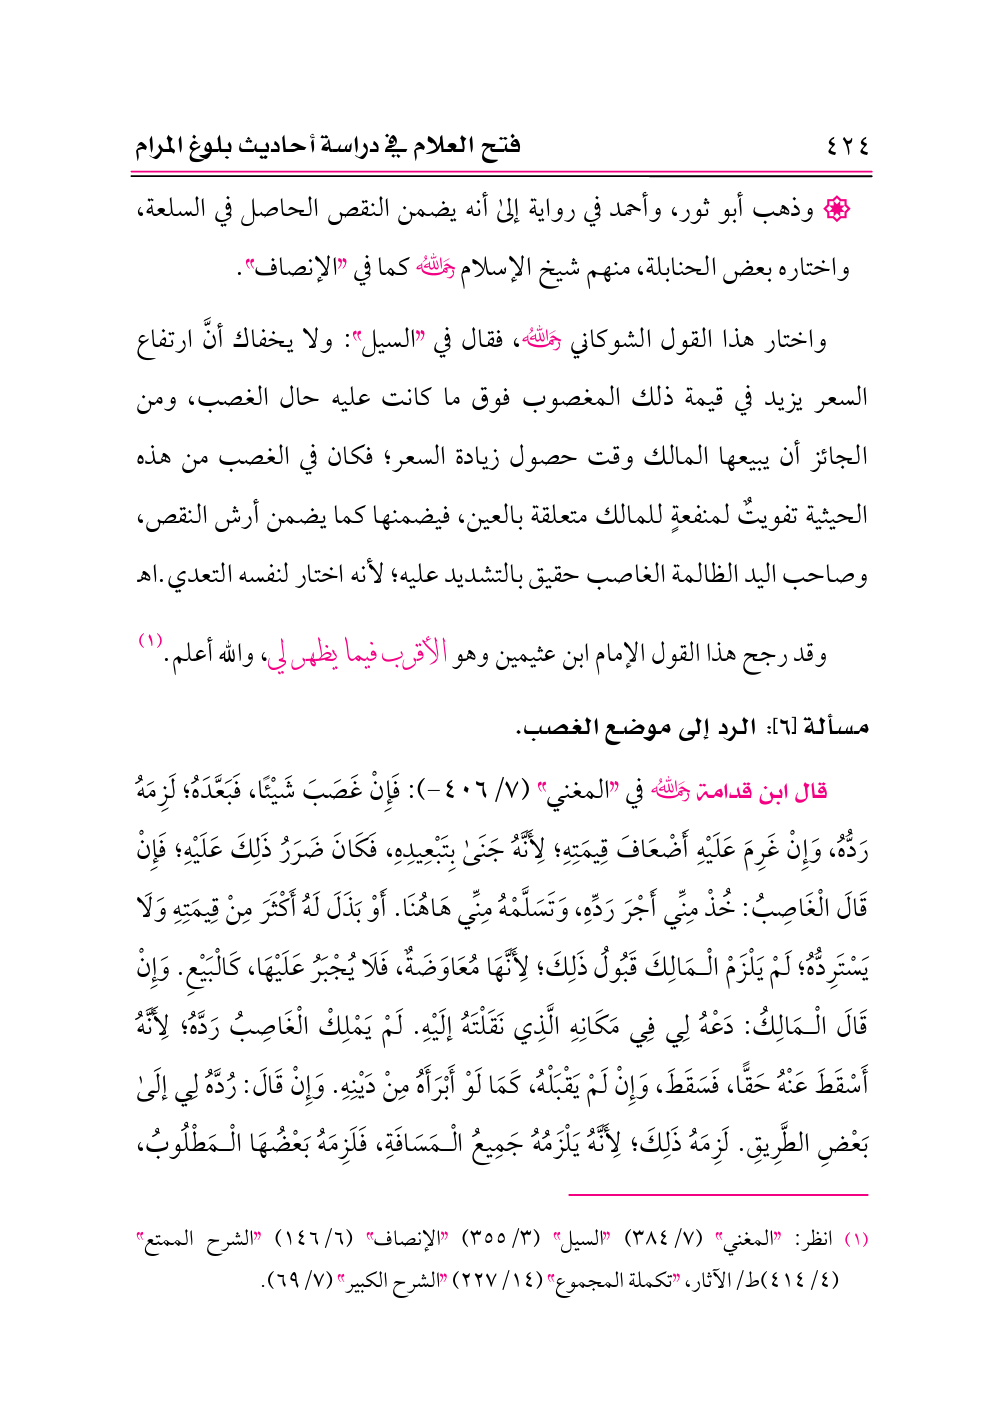 ٤٢٤ فتح العلام في دراسة أحاديث بلوغ المرام
وذهب أبو ثور، وأحمد في رواية إلىٰ أنه يضمن النقص الحاصل في السلعة،
واختاره بعض الحنابلة، منهم شيخ الإسلام رحمه الله كما في "الإنصاف".
واختار هذا القول الشوكاني رحمه الله، فقال في "السيل": ولا يخفاك أنَّ ارتفاع
السعر يزيد في قيمة ذلك المغصوب فوق ما كانت عليه حال الغصب، ومن
الجائز أن يبيعها المالك وقت حصول زيادة السعر؛ فكان في الغصب من هذه
الحيثية تفويتٌ لمنفعةٍ للمالك متعلقة بالعين، فيضمنها كما يضمن أرش النقص،
وصاحب اليد الظالمة الغاصب حقيق بالتشديد عليه؛ لأنه اختار لنفسه التعدي.اهـ
وقد رجح هذا القول الإمام ابن عثيمين وهو الأقرب فيما يظهر لي، والله أعلم.(١)
مسألة [٦]: الرد إلى موضع الغصب.
قال ابن قدامة رحمه الله في "المغني" (٧/ ٤٠٦-): فَإِنْ غَصَبَ شَيْئًا، فَبَعَّدَهُ؛ لَزِمَهُ
رَدُّهُ، وَإِنْ غَرِمَ عَلَيْهِ أَضْعَافَ قِيمَتِهِ؛ لِأَنَّهُ جَنَىٰ بِتَبْعِيدِهِ، فَكَانَ ضَرَرُ ذَلِكَ عَلَيْهِ؛ فَإِنْ
قَالَ الْغَاصِبُ: خُذْ مِنِّي أَجْرَ رَدِّهِ، وَتَسَلَّمْهُ مِنِّي هَاهُنَا. أَوْ بَذَلَ لَهُ أَكْثَرَ مِنْ قِيمَتِهِ وَلَا
يَسْتَرِدُّهُ؛ لَمْ يَلْزَمْ الْـمَالِكَ قَبُولُ ذَلِكَ؛ لِأَنَّهَا مُعَاوَضَةٌ، فَلَا يُجْبَرُ عَلَيْهَا، كَالْبَيْعِ. وَإِنْ
قَالَ الْـمَالِكُ: دَعْهُ لِي فِي مَكَانِهِ الَّذِي نَقَلْتَهُ إلَيْهِ. لَمْ يَمْلِكْ الْغَاصِبُ رَدَّهُ؛ لِأَنَّهُ
أَسْقَطَ عَنْهُ حَقًّا، فَسَقَطَ، وَإِنْ لَمْ يَقْبَلْهُ، كَمَا لَوْ أَبْرَأَهُ مِنْ دَيْنِهِ. وَإِنْ قَالَ: رُدَّهُ لِي إلَىٰ
بَعْضِ الطَّرِيقِ. لَزِمَهُ ذَلِكَ؛ لِأَنَّهُ يَلْزَمُهُ جَمِيعُ الْـمَسَافَةِ، فَلَزِمَهُ بَعْضُهَا الْـمَطْلُوبُ،
(١) انظر: "المغني" (٧/ ٣٨٤) "السيل" (٣/ ٣٥٥) "الإنصاف" (٦/ ١٤٦) "الشرح الممتع"
(٤/ ٤١٤)ط/ الآثار، "تكملة المجموع" (١٤/ ٢٢٧) "الشرح الكبير" (٧/ ٦٩).